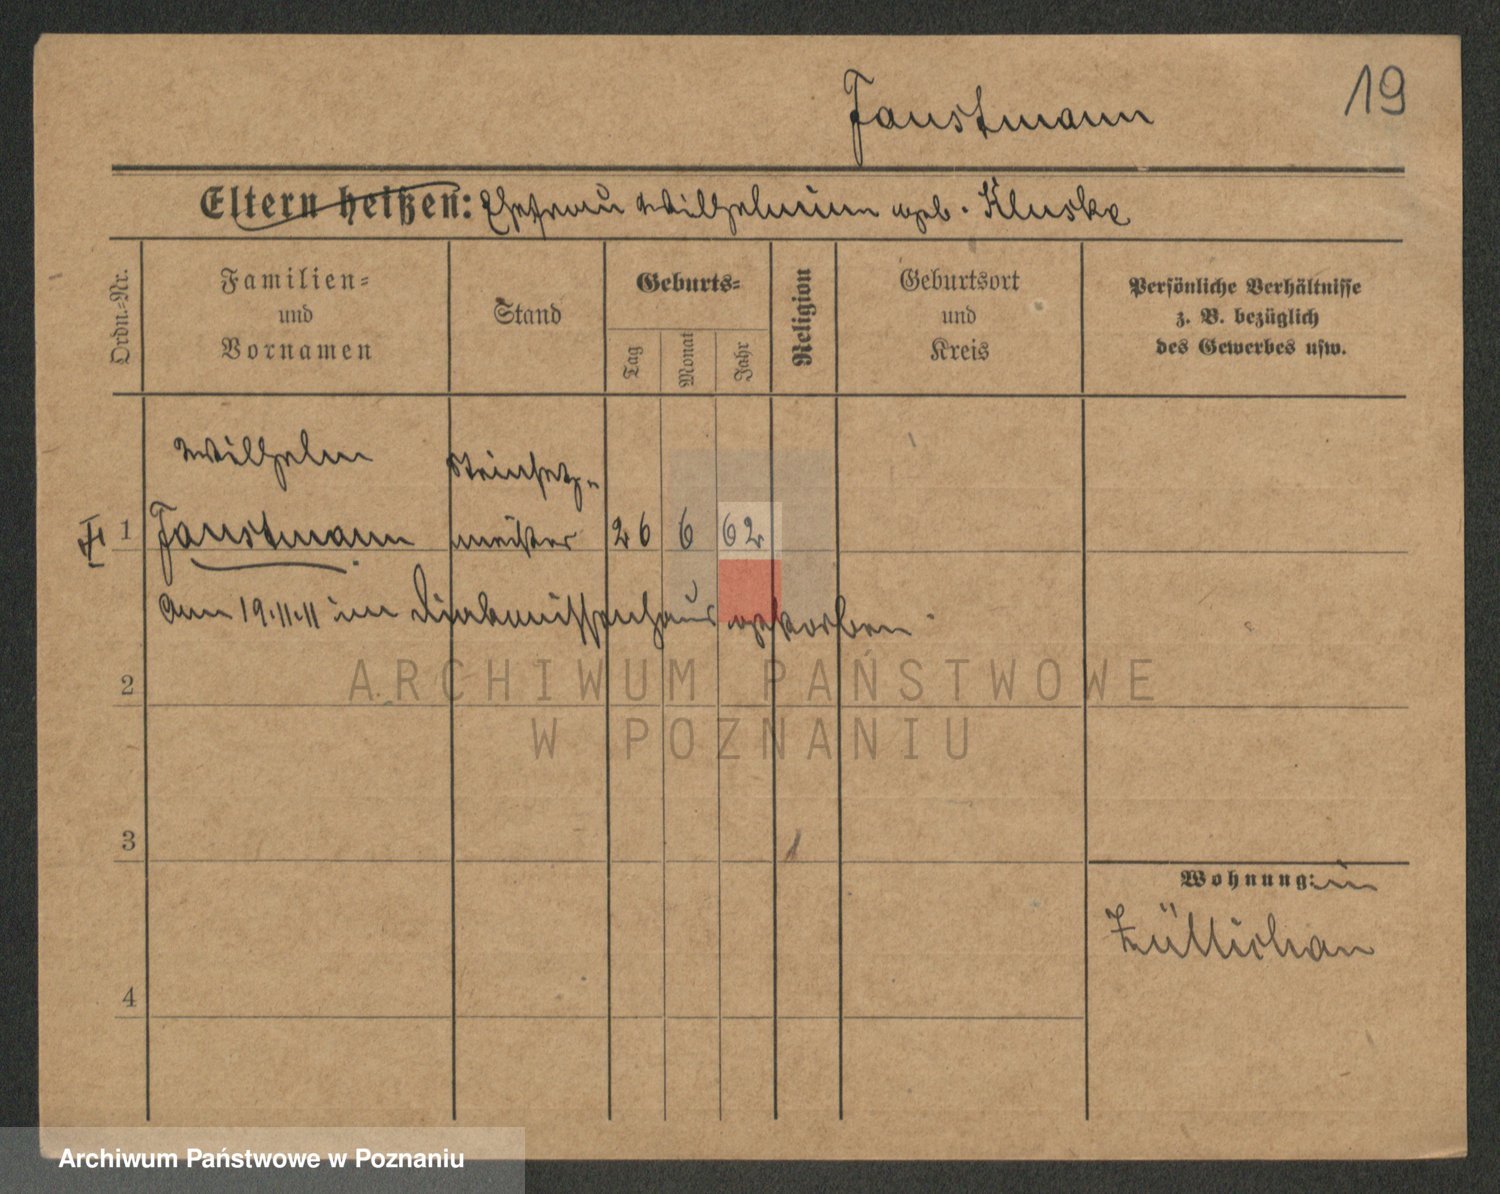 Faustmann
19
Eltern heißen: Ehefrau Wilhelmine geb. Kluske
Ordn.-Nr.
Familien-
und
Vornamen
Stand
Geburts-
Tag
Monat
Jahr
Religion
Geburtsort
und
Kreis
Persönliche Verhältnisse
z. B. bezüglich
des Gewerbes usw.
Wilhelm Steinsetz-
1 Faustmann meister 26 6 62
Am 19.11.11 im Diakonissenhaus gestorben
ARCHIWUM PAŃSTWOWE
W POZNANIU
2
3
Wohnung: in
Züllichau
4
Archiwum Państwowe w Poznaniu